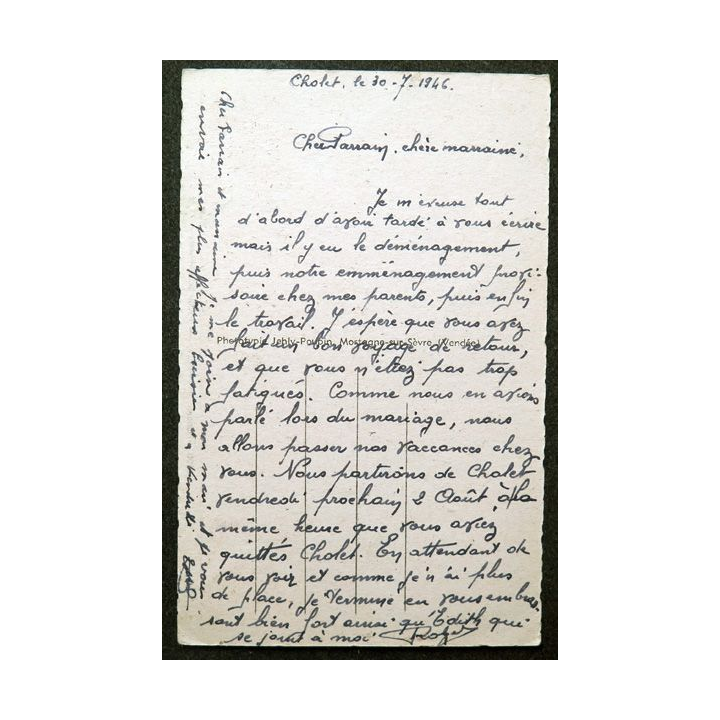 Cholet, le 30-7-1946.
Cher Parrain, chère marraine,
Je m'excuse tout
d'abord d'avoir tardé à vous écrire
mais il y eu le deménagement,
puis notre emménagement provi-
soire chez mes parents, puis enfin
le travail. J'espère que vous avez
Phototypie Jehly-Poupin, Mortagne-sur-Sèvre (Vendée)
fait un bon voyage de retour,
et que vous n'étiez pas trop
fatigués. Comme nous en avions
parlé lors du mariage, nous
allons passer nos vaccances chez
vous. Nous partirons de Cholet
vendredi prochain 2 Août, à la
même heure que vous aviez
quittés Cholet. En attendant de
vous voir et comme je n'ai plus
de place, je termine en vous embras-
sant bien fort ainsi qu'Edith qui
se joint à moi. Roger
Cher Parrain et marraine Je me joins à mon mari et je vous
envoie mes plus affectueux baisers et à vendredi Edith